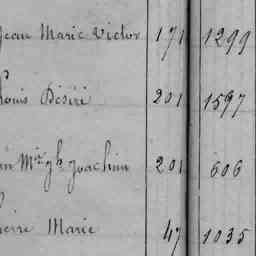 Jean Marie Victor 171 1299
Louis Désiré 201 1597
Joachim 201 606
Pierre Marie 47 1035